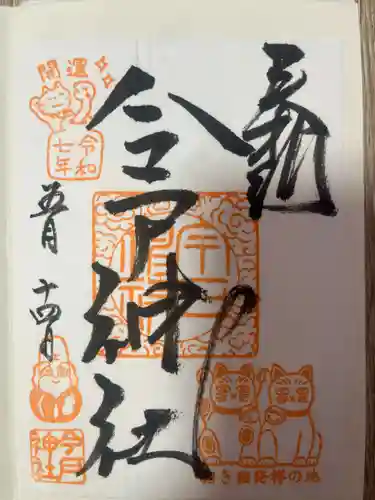 奉拝
今戸神社
招き猫発祥の地
開運
令和
七年
五月 十四日
今戸
神社